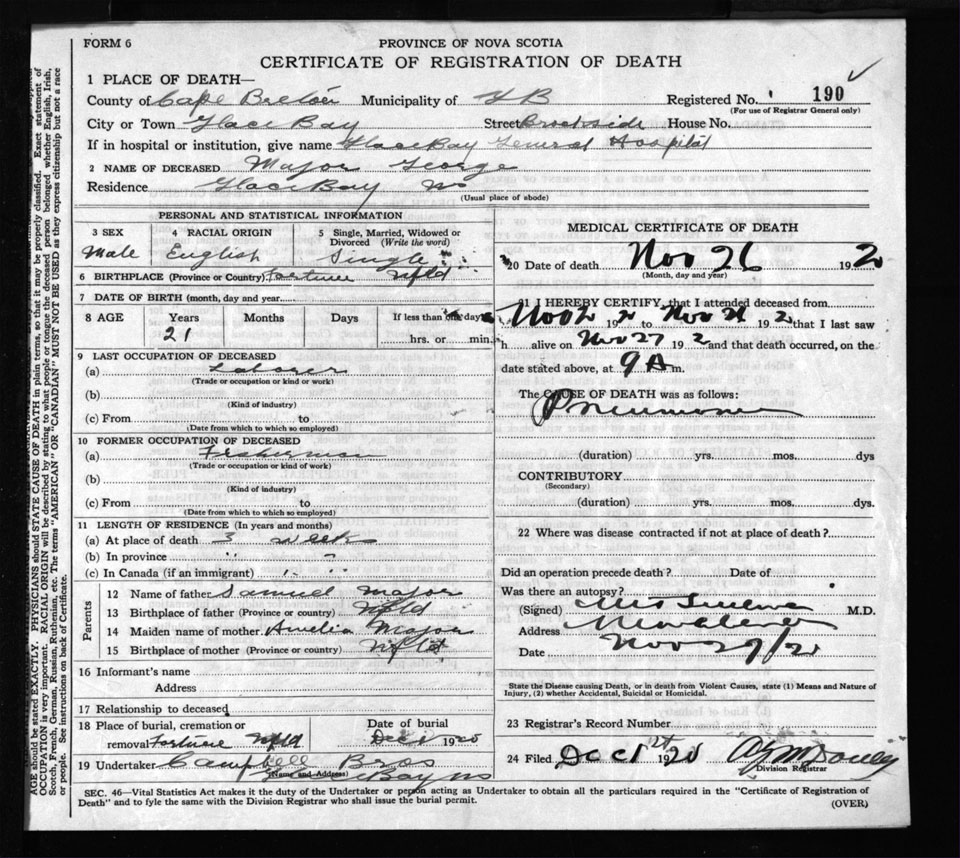 FORM 6
PROVINCE OF NOVA SCOTIA
CERTIFICATE OF REGISTRATION OF DEATH
1 PLACE OF DEATH—
County of Cape Breton Municipality of Registered No. 190
(For use of Registrar General only)
City or Town Glace Bay Street Brookside House No.
If in hospital or institution, give name Glace Bay General Hospital
2 NAME OF DECEASED Major George
Residence Glace Bay NS
(Usual place of abode)
PERSONAL AND STATISTICAL INFORMATION
3 SEX 4 RACIAL ORIGIN 5 Single, Married, Widowed or
Divorced (Write the word)
Male English Single
6 BIRTHPLACE (Province or Country) Fortune Nfld
7 DATE OF BIRTH (month, day and year)
8 AGE Years Months Days If less than one day
21 hrs. or min.
9 LAST OCCUPATION OF DECEASED
(a) Laborer
(Trade or occupation or kind or work)
(b)
(Kind of industry)
(c) From to
(Date from which to which so employed)
10 FORMER OCCUPATION OF DECEASED
(a) Fisherman
(Trade or occupation or kind or work)
(b)
(Kind of industry)
(c) From to
(Date from which to which so employed)
11 LENGTH OF RESIDENCE (In years and months)
(a) At place of death 3 weeks
(b) In province " "
(c) In Canada (if an immigrant) " "
Parents
12 Name of father Samuel Major
13 Birthplace of father (Province or country) Nfld
14 Maiden name of mother Amelia Major
15 Birthplace of mother (Province or country) Nfld
16 Informant's name
Address
17 Relationship to deceased
18 Place of burial, cremation or Date of burial
removal Fortune Nfld Dec 1 1920
19 Undertaker Campbell Bros
(Name and Address) Glace Bay NS
MEDICAL CERTIFICATE OF DEATH
20 Date of death Nov 26 192 0
(Month, day and year)
21 I HEREBY CERTIFY, that I attended deceased from
Nov 192 to Nov 192 that I last saw
h alive on Nov 27 192 and that death occurred, on the
date stated above, at 9 A m.
The CAUSE OF DEATH was as follows:
Pneumonia
(duration) yrs. mos. dys
CONTRIBUTORY
(Secondary)
(duration) yrs. mos. dys.
22 Where was disease contracted if not at place of death?
Did an operation precede death? Date of
Was there an autopsy?
(Signed) M.D.
Address
Date Nov 29/20
State the Disease causing Death, or in death from Violent Causes, state (1) Means and Nature of
Injury, (2) whether Accidental, Suicidal or Homicidal.
23 Registrar's Record Number
24 Filed Dec 1st 1920
Division Registrar
SEC. 46—Vital Statistics Act makes it the duty of the Undertaker or person acting as Undertaker to obtain all the particulars required in the "Certificate of Registration of
Death" and to fyle the same with the Division Registrar who shall issue the burial permit.
(OVER)
AGE should be stated EXACTLY. PHYSICIANS should STATE CAUSE OF DEATH in plain terms, so that it may be properly classified. Exact statement of
OCCUPATION is very important. RACIAL ORIGIN will be described by stating to what people or tongue the deceased person belonged whether English, Irish,
Scotch, French, German, Russian, Ruthenian, etc. The terms "AMERICAN" OR "CANADIAN" MUST NOT BE USED as they express citizenship but not a race
or people. See instructions on back of Certificate.